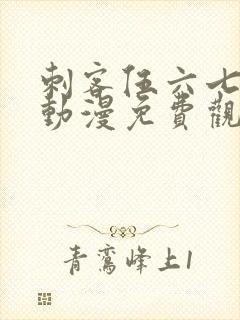 刺客伍六七
動漫免費觀
青鸞峰上1